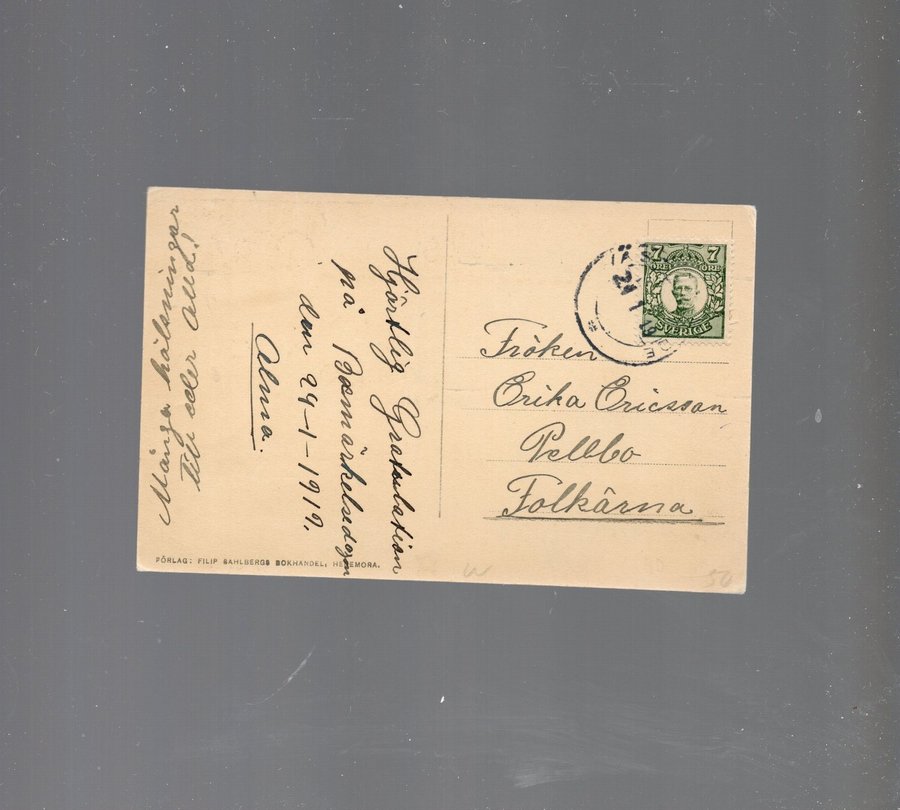 Många hälsningar
till eder alla!
Hjärtlig Gratulation
på Bemärkelsedagen
den 24-1-1919.
Alma.
FÖRLAG: FILIP SAHLBERGS BOKHANDEL, HEDEMORA.
7 7
ÖRE ÖRE
SVERIGE
24 1 19
Fröken
Erika Ericsson
Pellbo
Folkärna
50